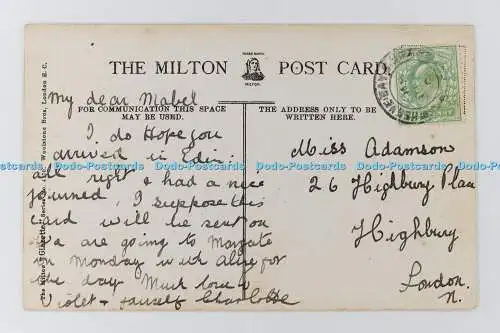 THE MILTON POST CARD
TRADE MARK
MILTON.
FOR COMMUNICATION THIS SPACE
MAY BE USED.
THE ADDRESS ONLY TO BE
WRITTEN HERE.
My dear Mabel
I do Hope you
arrived in Edin:
all right & had a nice
journed, I suppose this
card will be sent on
Pa are going to Margate
on Monday with Ally for
one day Much love
Violet & yourself Charlotte
Miss Adamson
26 Highbury Place
Highbury
London.
N.
Woolstone Bros, London E.C.
Dodo-Postcards Dodo-Postcards Dodo-Postcards Dodo-Postcards Dodo-Postcards